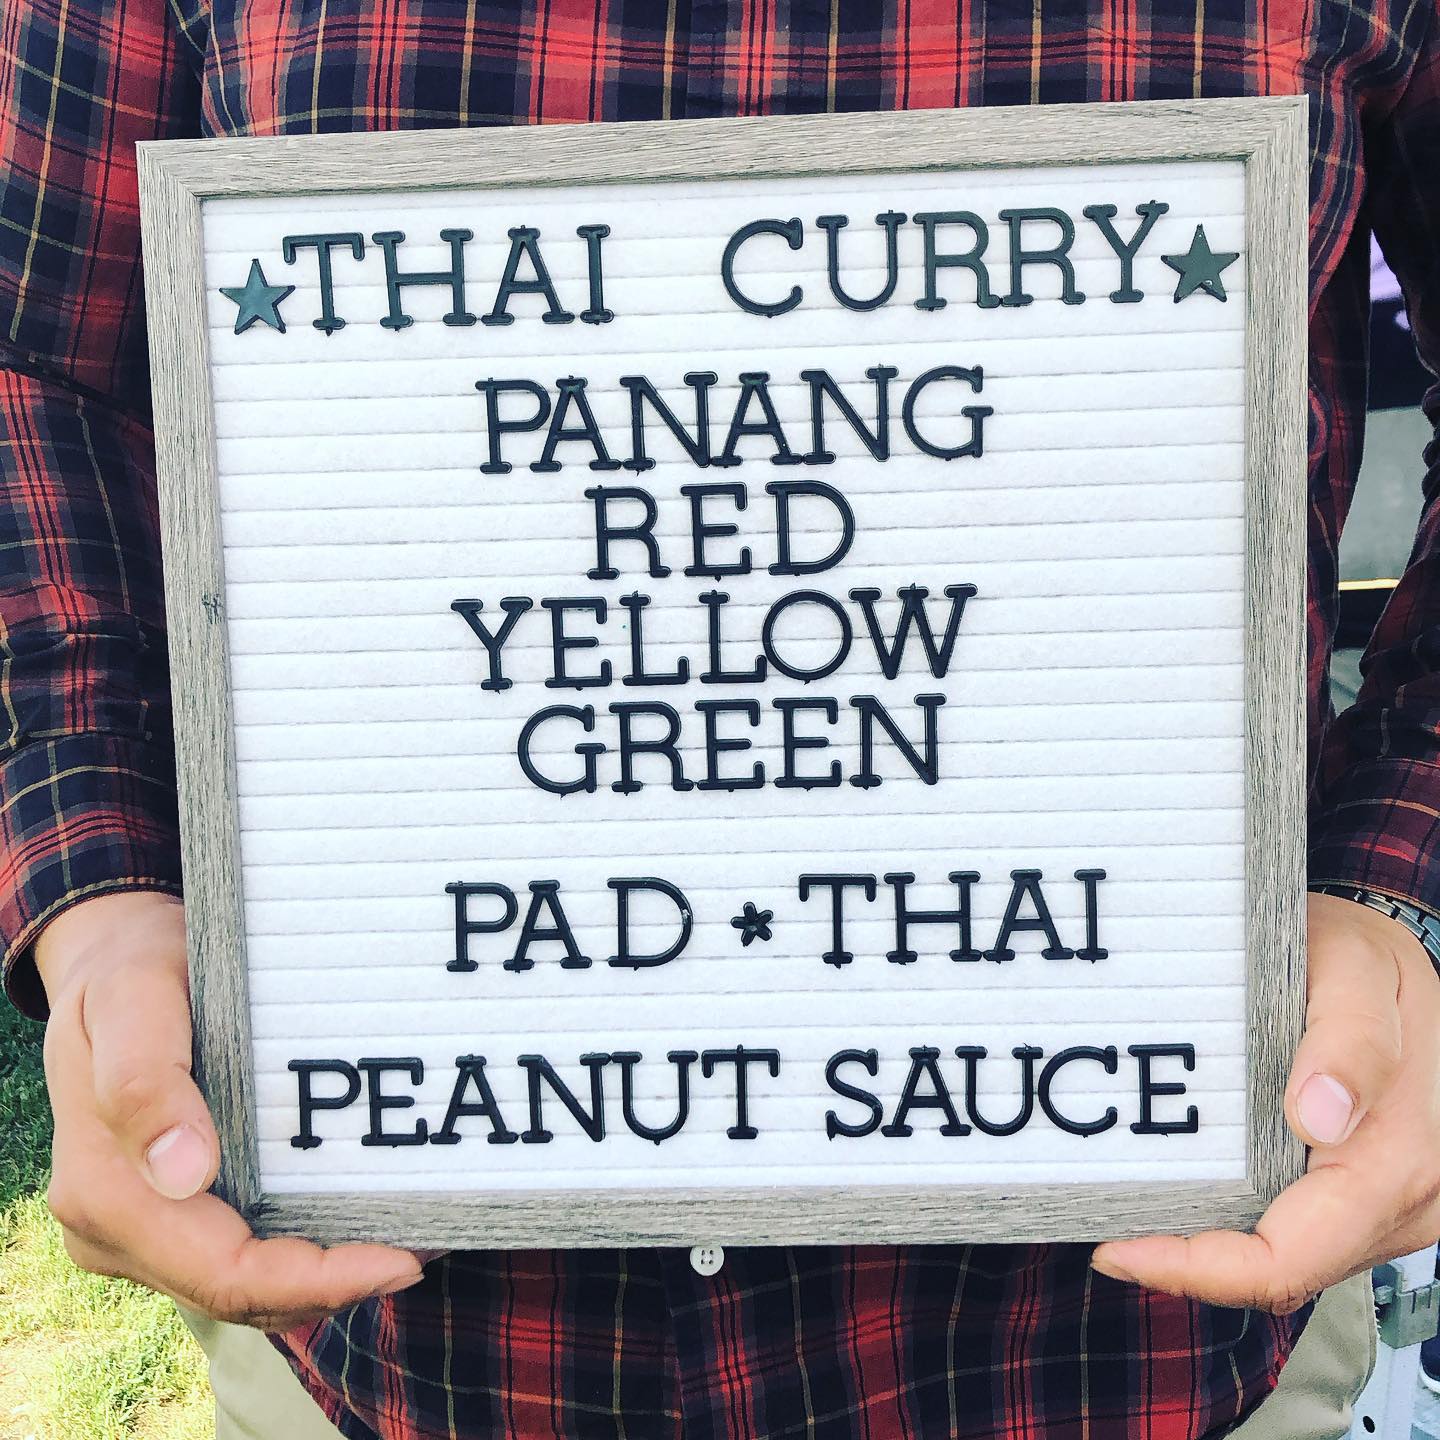 ★THAI CURRY★
PANANG
RED
YELLOW
GREEN
PAD * THAI
PEANUT SAUCE